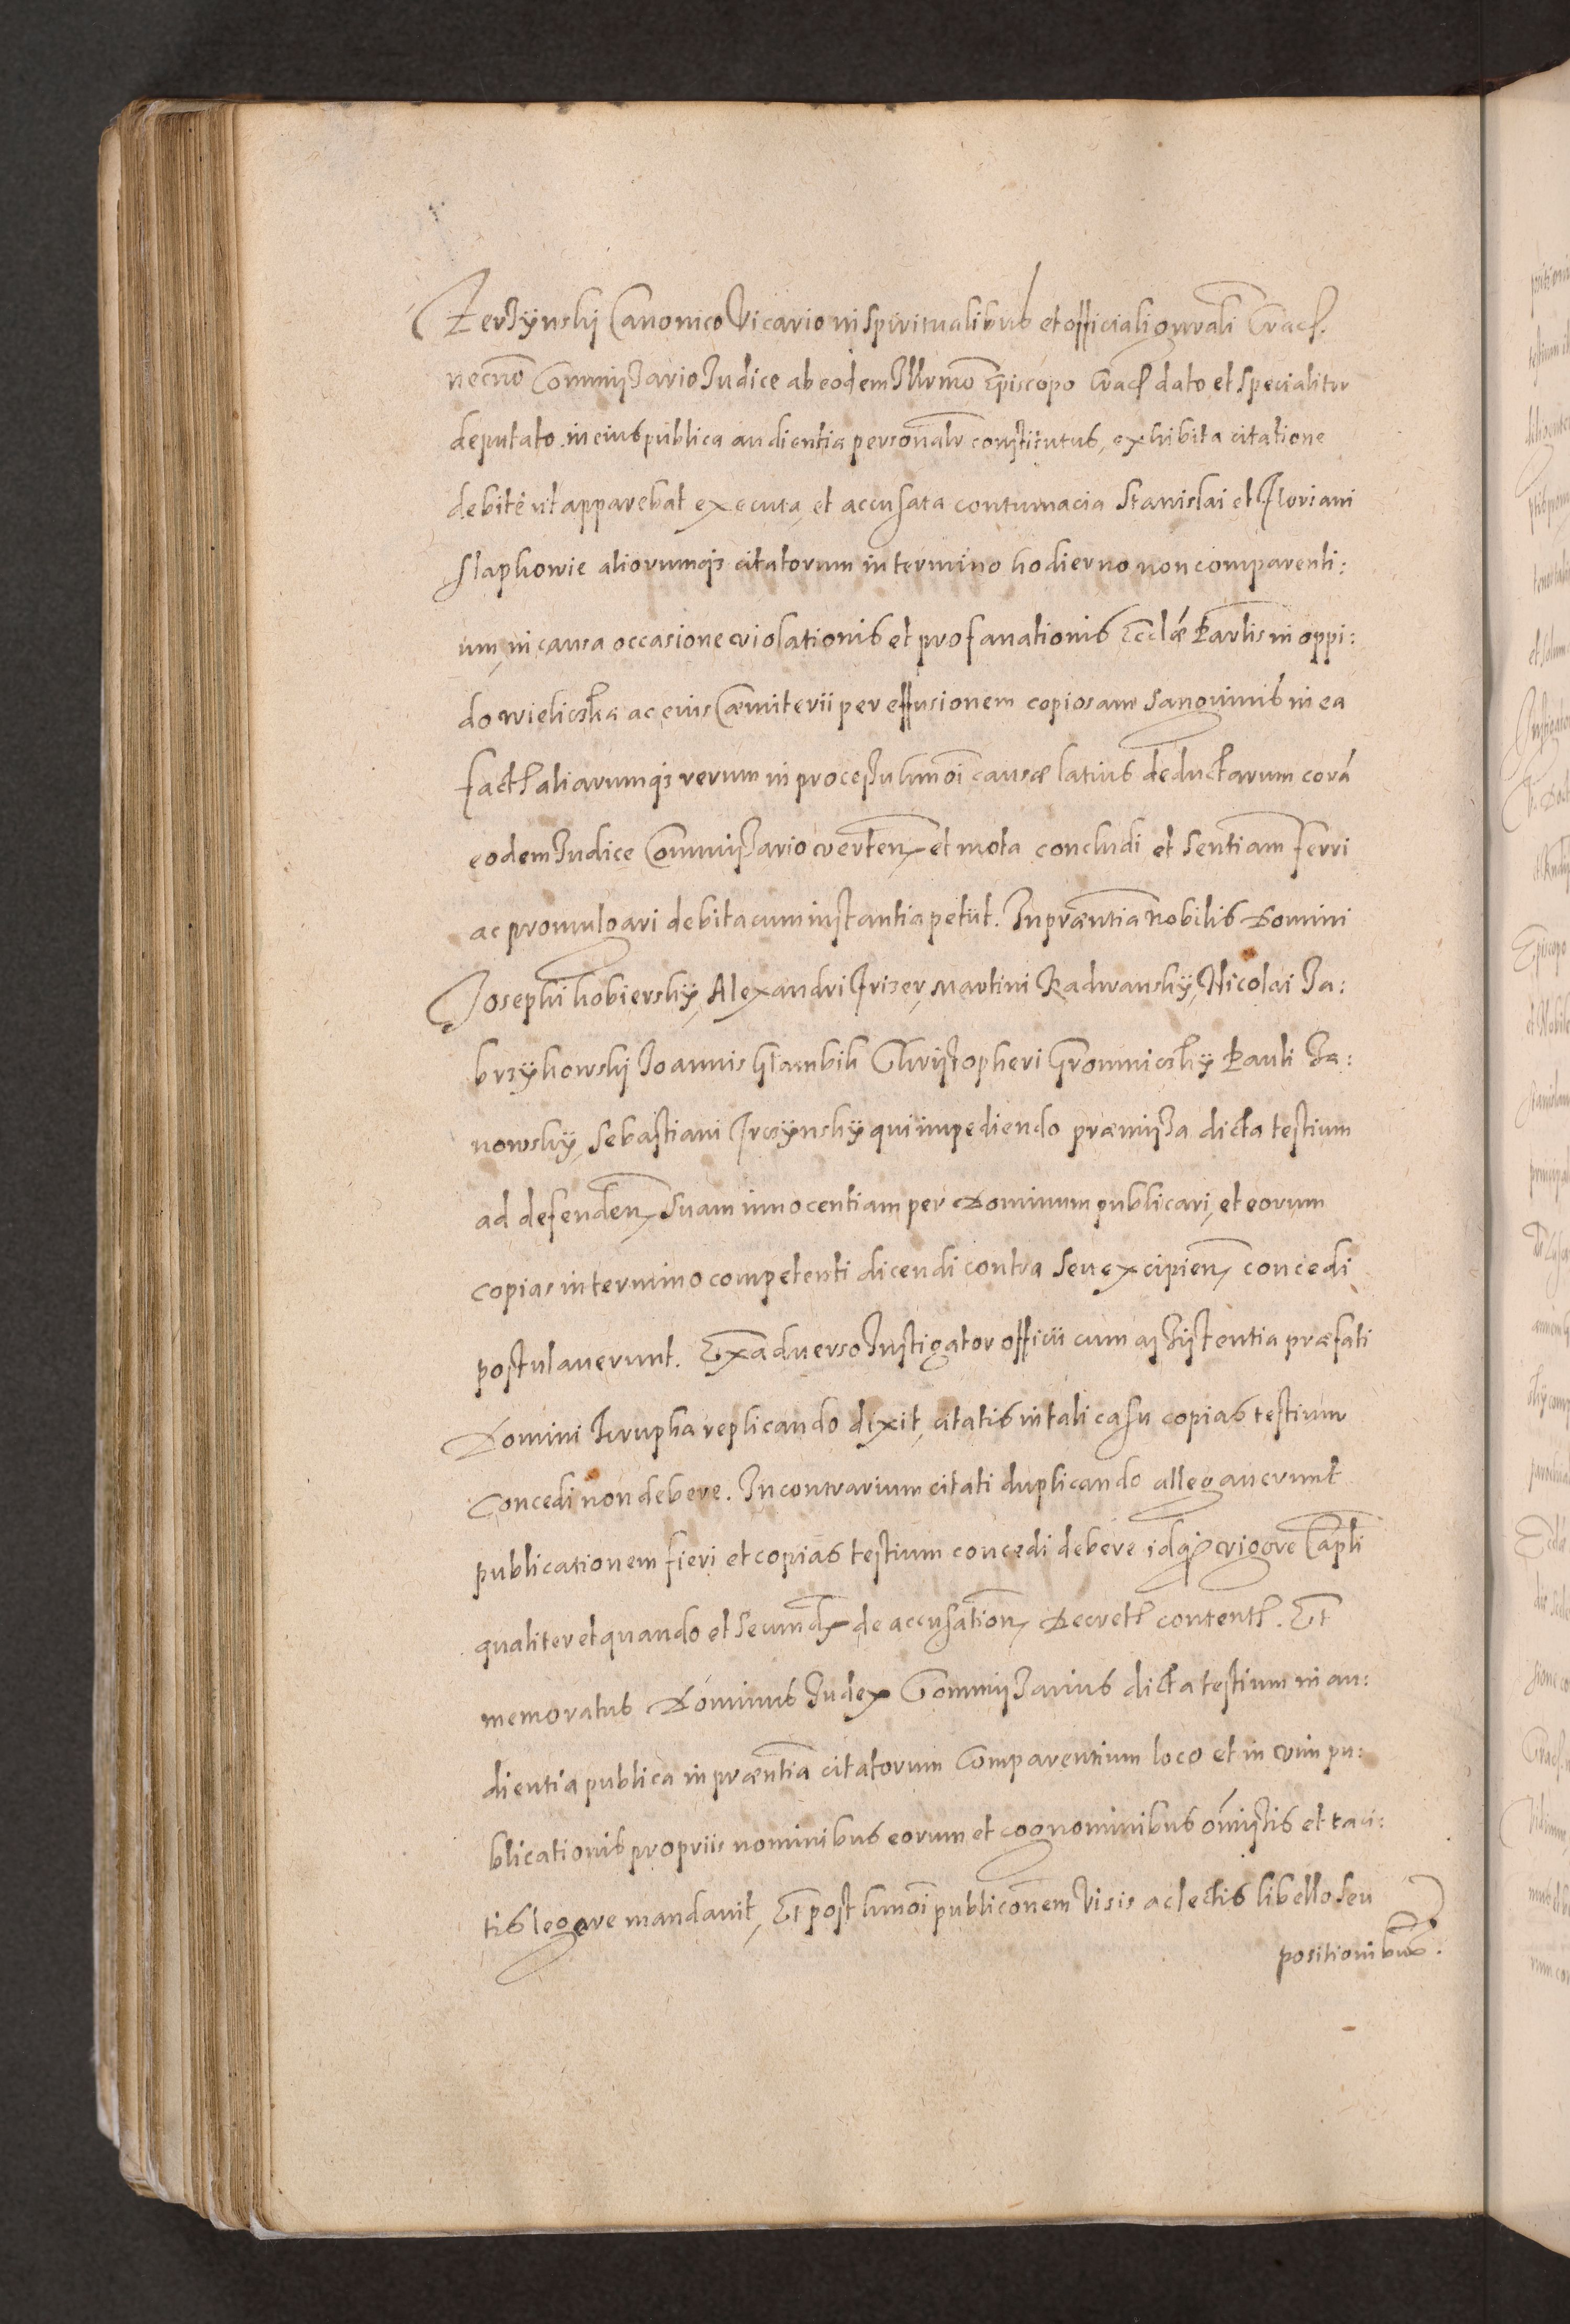 Zerzÿnskÿ Canonico Vicario in Spiritualibus et officiali gnrali Cracſ.
necnõ Commissario Iudice ab eodem Illrmo Episcopo Cracſ dato et specialiter
deputato. in eius publica audientia personalr constitutus, exhibita citatione
debite ut apparebat executa, et accusata contumacia Stanislai et Floriani
Slapkowie aliorumqз citatorum in termino hodierno non comparenti:
um, in causa occasione violationis et profanationis Ecclæ Parlis in oppi:
do Wieliczka ac eius Cæmiterii per effusionem copiosam Sanguinis in ea
fact aliarumqз rerum in processu hmoi causæ latius deductarum corã
eodem Iudice Commissario verten et mota concludi et Sentiam ferri
ac promulgari debita cum instantia petiit. In præntia Nobilis Domini
Josephi kobierskÿ, Alexandri Frizer, Martini Radwanskÿ, Nicolai Za:
brzÿkowskÿ Joannis Gfambik Christopheri Gromniczkÿ Pauli Ja:
nowskÿ, Sebastiani Irczÿnskÿ qui impediendo præmissa dicta testium
ad defenden suam innocentiam per Dominum publicari, et eorum
copias in termino competenti dicendi contra seu excipien concedi
postulaverunt. Ex adverso Instigator officii cum assistentia præfati
Domini Krupka replicando dixit, citatis in tali casu copias testium
Concedi non debere. In contrarium citati duplicando allegaverunt
publicationem fieri et copias testium concedi debere idqз vigore Capli
qualiter et quando et secund de accusation Decret content. Et
memoratus Dominus Iudex Commissarius dicta testium in au:
dientia publica in præntia citatorum Comparentium loco et in vim pu:
blicationis propriis nominibus eorum et cognominibus omissis et taci:
tis legere mandavit, Et post hmoi publiconem Visis ac lectis libello seu
positionibus.